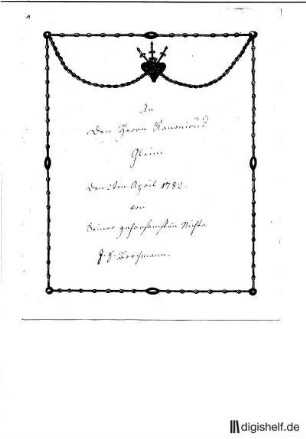 An
Den Herrn Kanonicus
Gleim
Den 2ten April 1782.
von
Seiner gehorsamsten Nichte
digishelf.de